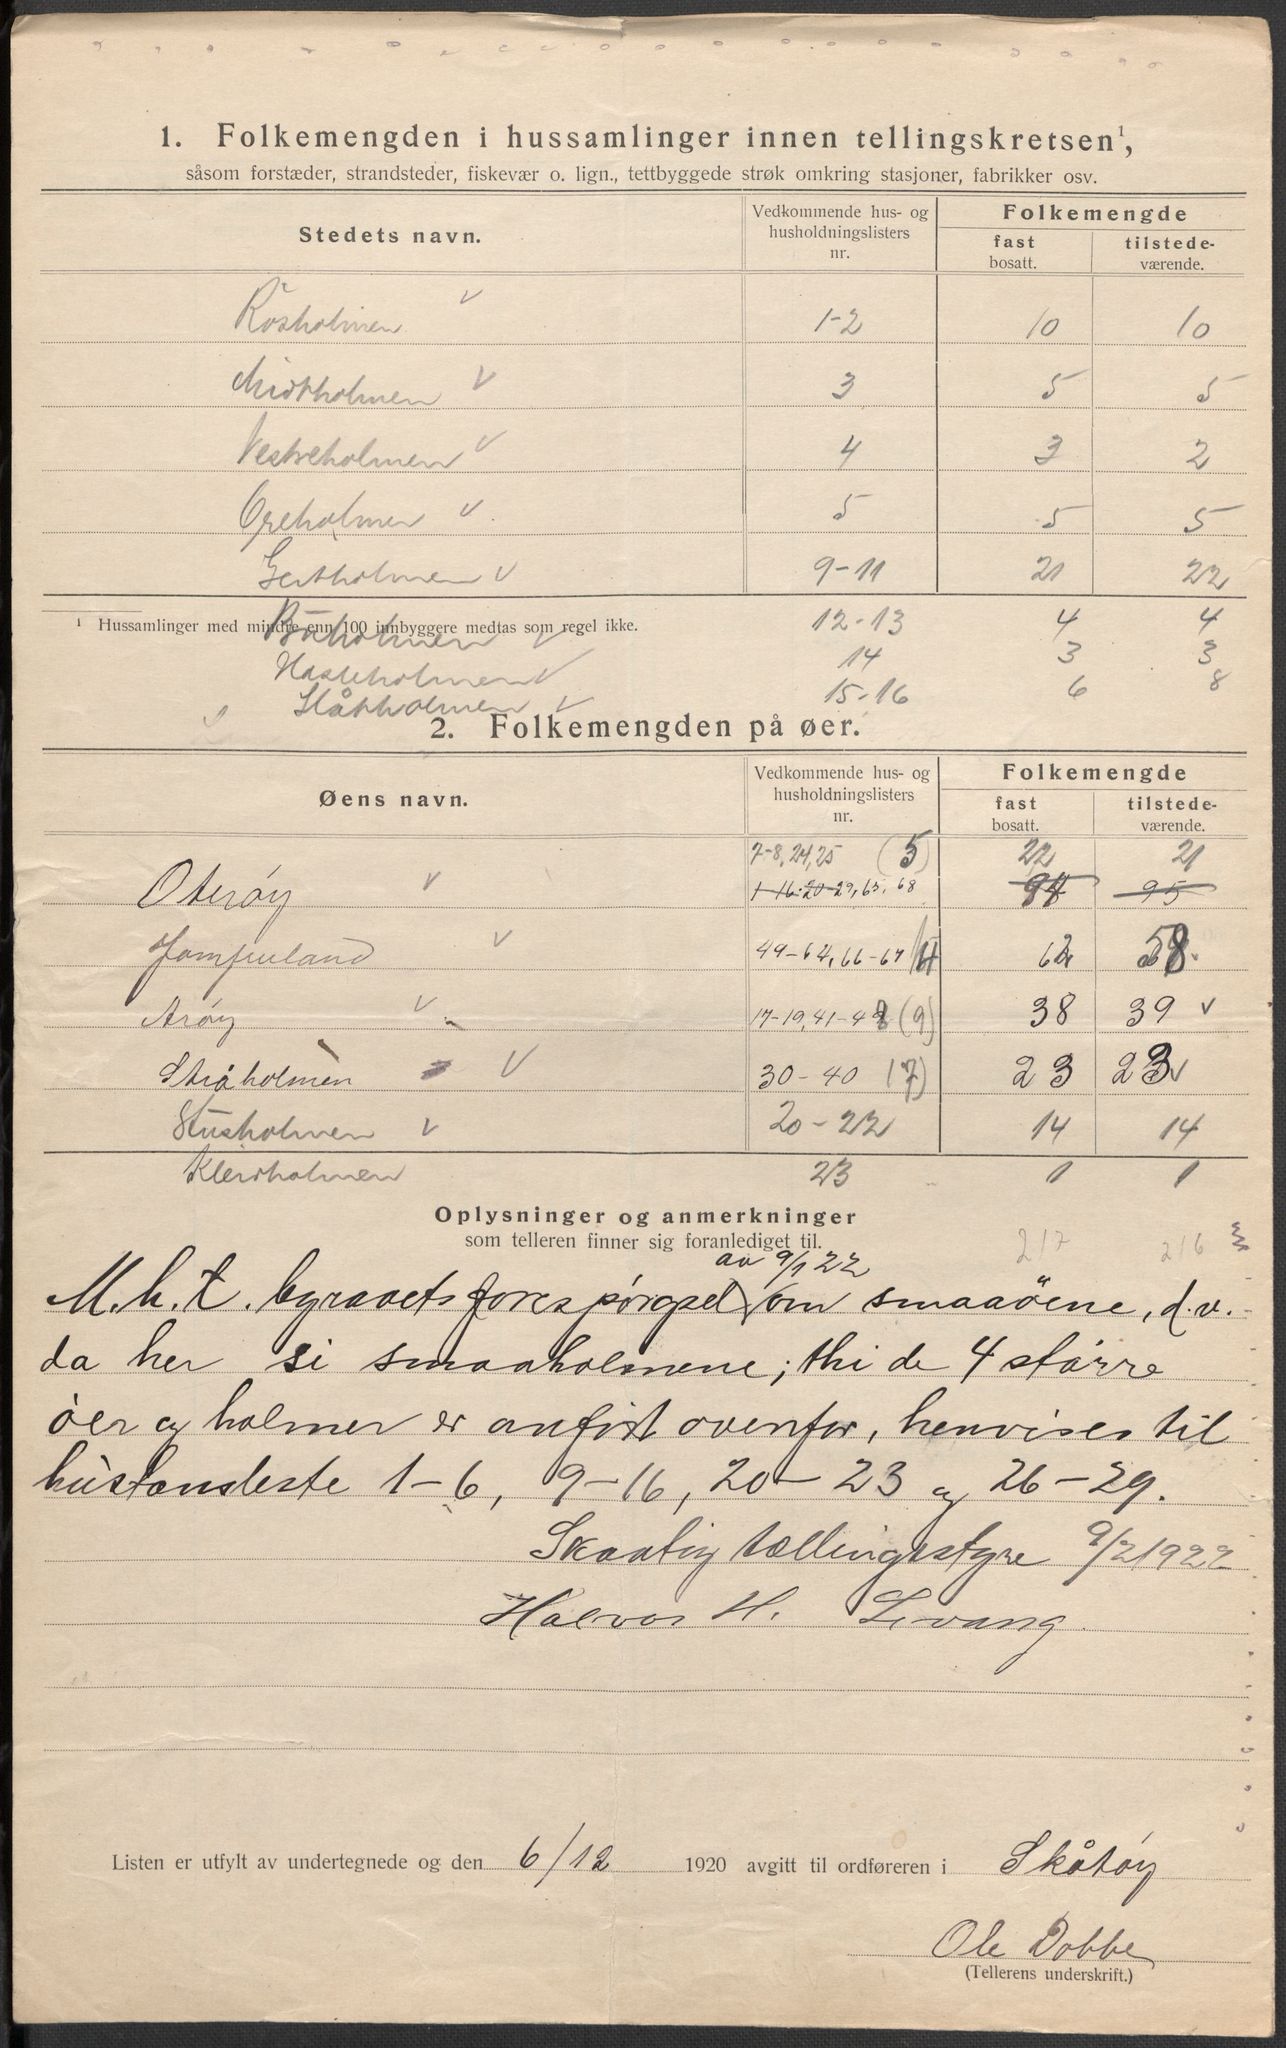 1. Folkemengden i hussamlinger innen tellingskretsen¹,
såsom forstæder, strandsteder, fiskevær o. lign., tettbyggede strøk omkring stasjoner, fabrikker osv.
Stedets navn. Vedkommende hus- og husholdningslisters nr. Folkemengde fast bosatt. tilstede-værende.
Råsholmen v 1-2 10 10
Midtholmen v 3 5 5
Vestreholmen v 4 3 2
Oreholmen v 5 5 5
Gertholmen v 9-11 21 22
¹ Hussamlinger med mindre enn 100 innbyggere medtas som regel ikke.
v 12-13 4 4
Hasleholmen v 14 3 3
Slåttholmen v 15-16 6 8
2. Folkemengden på øer.
Øens navn. Vedkommende hus- og husholdningslisters nr. Folkemengde fast bosatt. tilstede-værende.
7-8, 24, 25 (5) 22 21
Oterøy v 1-16: 20-29, 65, 68 95
Jomfruland v 49-64, 66-67 62 58
Arøy v 17-19, 41-48 (9) 38 39 v
Stråholmen v 30-40 (7) 23 23 v
Stusholmen v 20-22 14 14
Kleivholmen 23 1 1
Oplysninger og anmerkninger
som telleren finner sig foranlediget til.
217 216
av 9/1 22
M.h.t. byraaets forespørgsel om smaaöene, d.v.
da her si smaaholmene; thi de 4 større
öer og holmer er anført ovenfor, henvises til
husstandsliste 1-6, 9-16, 20-23 og 26-29.
Skaatöy tællingsstyre 9/2 1922
Halvor H. Livang
Listen er utfylt av undertegnede og den 6/12 1920 avgitt til ordføreren i Skåtøy
Ole Dobbe
(Tellerens underskrift.)